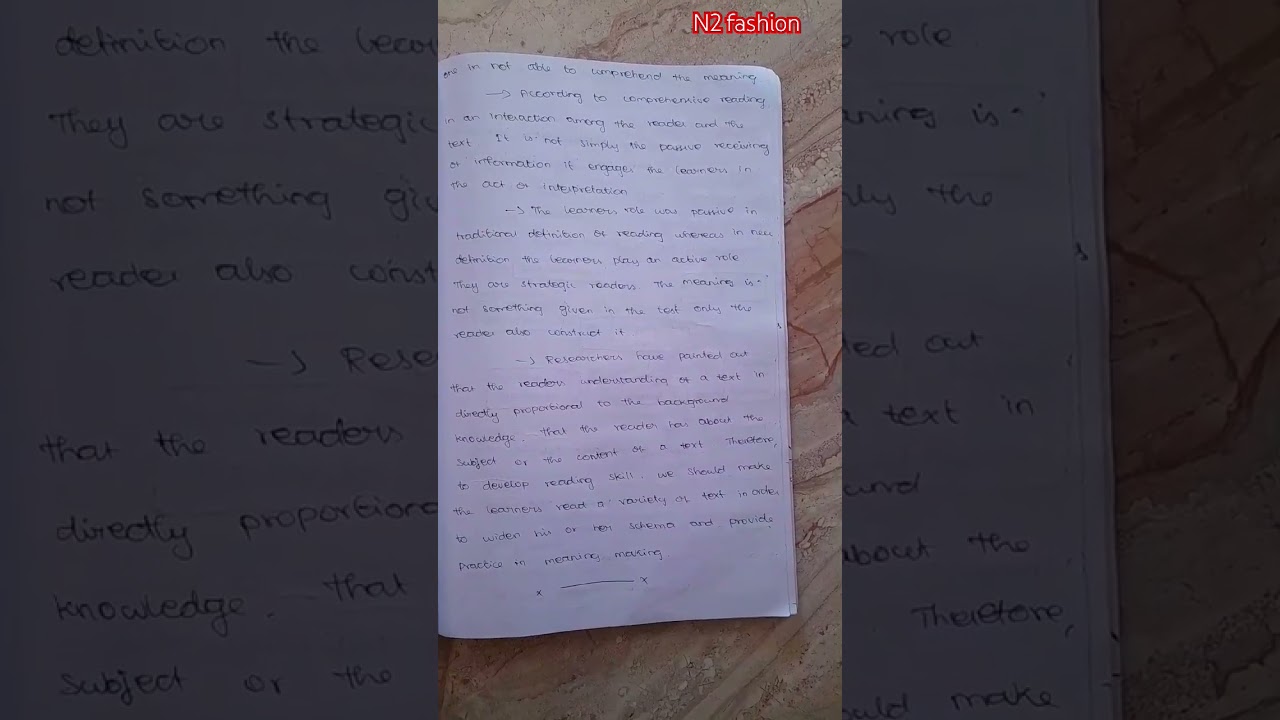 N2 fashion
one in not able to comprehend the meaning
→ According to comprehensive reading
in an interaction among the reader and the
text It is not simply the passive receiving
of information if engages the learners in
the act of interpretation
→ The learners role was passive in
traditional definition of reading whereas in new
definition the learners play an active role
They are strategic readers. The meaning is
not something given in the text only the
reader also construct it
→ Researchers have painted out
that the readers understanding of a text in
directly proportional to the background
knowledge. that the reader has about the
subject or the content of a text Therefore,
to develop reading skill. we should make
the learners read a variety of text in order
to widen his or her schema and provide
practice in meaning making
x —— x